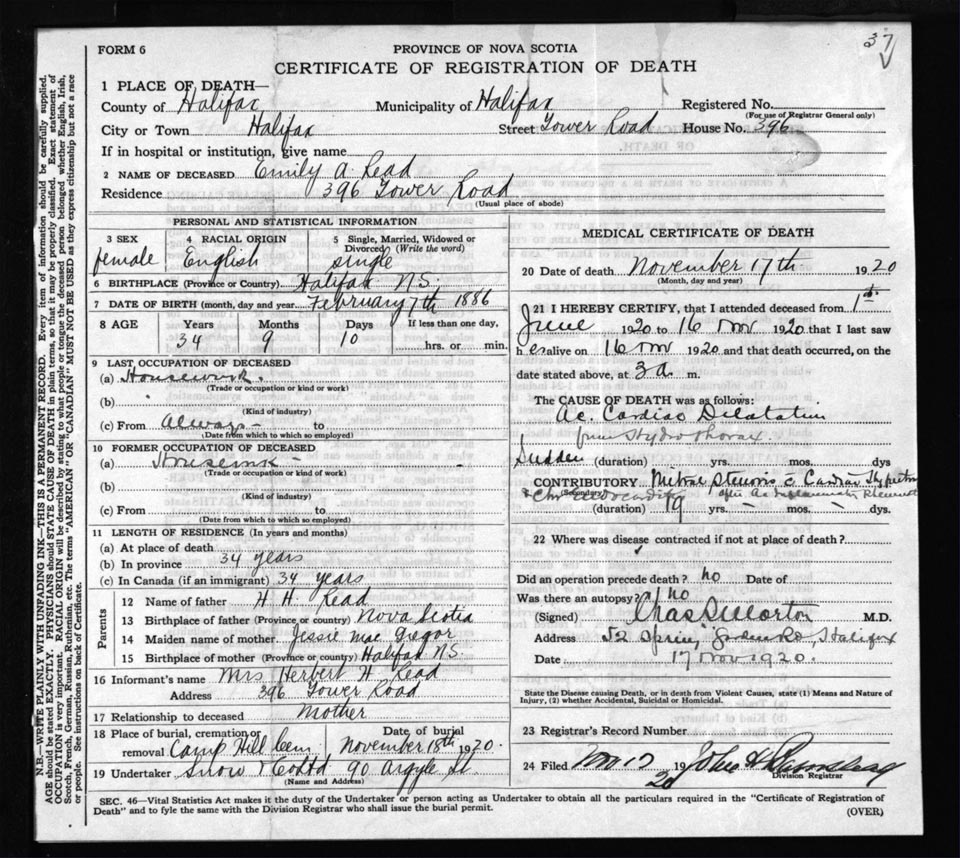 37
FORM 6
PROVINCE OF NOVA SCOTIA
CERTIFICATE OF REGISTRATION OF DEATH
1 PLACE OF DEATH—
County of Halifax Municipality of Halifax Registered No.
(For use of Registrar General only)
City or Town Halifax Street Tower Road House No. 396
If in hospital or institution, give name
2 NAME OF DECEASED Emily A. Read
Residence 396 Tower Road
(Usual place of abode)
PERSONAL AND STATISTICAL INFORMATION
3 SEX 4 RACIAL ORIGIN 5 Single, Married, Widowed or Divorced (Write the word)
female English single
6 BIRTHPLACE (Province or Country). Halifax N.S.
7 DATE OF BIRTH (month, day and year. February 7th 1886
8 AGE Years Months Days If less than one day,
34 9 10 hrs. or min.
9 LAST OCCUPATION OF DECEASED
(a) Housework.
(Trade or occupation or kind or work)
(b)
(Kind of industry)
(c) From Always - to
(Date from which to which so employed)
10 FORMER OCCUPATION OF DECEASED
(a)
(Trade or occupation or kind of work)
(b)
(Kind of industry)
(c) From to
(Date from which to which so employed)
11 LENGTH OF RESIDENCE (In years and months)
(a) At place of death
(b) In province 34 years
(c) In Canada (if an immigrant) 34 years
Parents
12 Name of father H. H. Read
13 Birthplace of father (Province or country) Nova Scotia
14 Maiden name of mother. Jessie Mac Gregor
15 Birthplace of mother (Province or country) Halifax N.S.
16 Informant's name Mrs Herbert H. Read
Address 396 Tower Road
17 Relationship to deceased Mother
18 Place of burial, cremation or removal Camp Hill Cem Date of burial November 18th 1920.
19 Undertaker Snow & Co Ltd 90 Argyle St.
(Name and Address)
MEDICAL CERTIFICATE OF DEATH
20 Date of death November 17th 1920
(Month, day and year)
21 I HEREBY CERTIFY, that I attended deceased from 1st
June 1920 to 16 Nov 1920 that I last saw
her alive on 16 Nov 1920 and that death occurred, on the
date stated above, at 3 a. m.
The CAUSE OF DEATH was as follows:
Ac. Cardiac Dilatation
from Hydrothorax.
Sudden (duration) yrs. mos. dys
CONTRIBUTORY Mitral Stenosis c̄ Cardiac
(Secondary)
& Chr. Endocarditis after Ac Inflammatory
(duration) 19 yrs. — mos. — dys.
22 Where was disease contracted if not at place of death?
Did an operation precede death? no Date of
Was there an autopsy? no
(Signed) Chas S Morton M.D.
Address 52 Spring Garden Rd, Halifax
Date 17 Nov 1920.
State the Disease causing Death, or in death from Violent Causes, state (1) Means and Nature of
Injury, (2) whether Accidental, Suicidal or Homicidal.
23 Registrar's Record Number
24 Filed Nov 17 1920 John H
Division Registrar
SEC. 46—Vital Statistics Act makes it the duty of the Undertaker or person acting as Undertaker to obtain all the particulars required in the "Certificate of Registration of
Death" and to fyle the same with the Division Registrar who shall issue the burial permit.
(OVER)
N.B.—WRITE PLAINLY WITH UNFADING INK—THIS IS A PERMANENT RECORD. Every item of information should be carefully supplied.
AGE should be stated EXACTLY. PHYSICIANS should STATE CAUSE OF DEATH in plain terms, so that it may be properly classified. Exact statement of
OCCUPATION is very important. RACIAL ORIGIN will be described by stating to what people or tongue the deceased person belonged whether English, Irish,
Scotch, French, German, Russian, Ruthenian, etc. The terms "AMERICAN" OR "CANADIAN" MUST NOT BE USED as they express citizenship but not a race
or people. See instructions on back of Certificate.